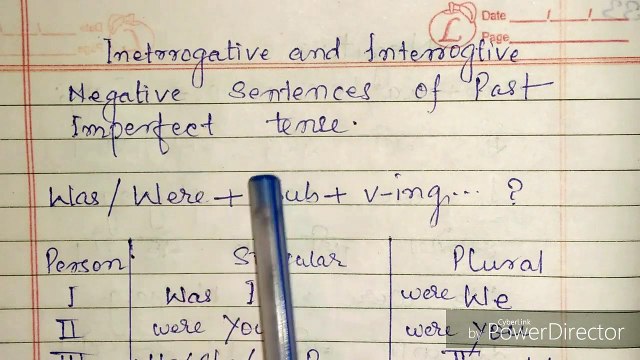 Date / /
Page
Inetrrogative and Interrogtive
Negative Sentences of Past
Imperfect tense.
Was / Were + ub + v-ing... ?
Person Plural
I Was I were We
II were You were you
III
CyberLink
by PowerDirector